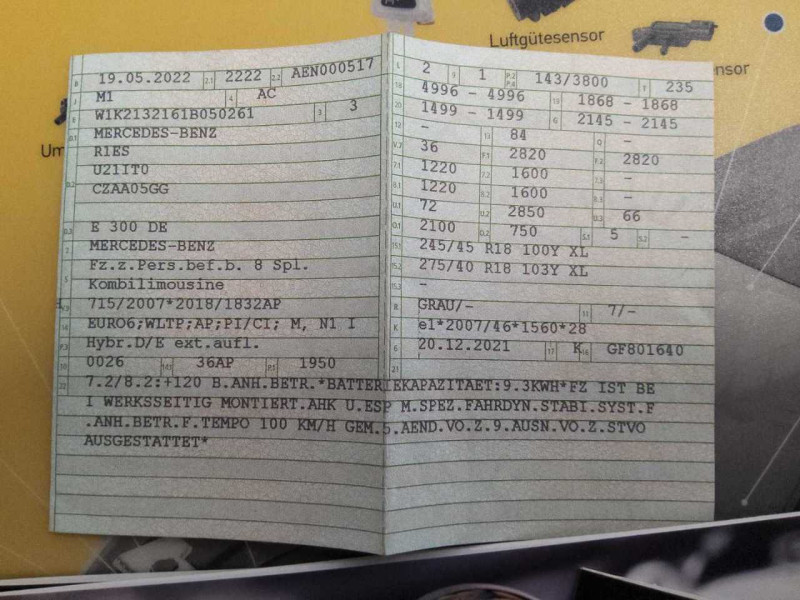 Luftgütesensor
nsor
Um
B 19.05.2022 2.1 2222 2.2 AEN000517
J M1 4 AC
E W1K2132161B050261 3 3
D.1 MERCEDES-BENZ
R1ES
D.2 U21IT0
CZAA05GG
D.3 E 300 DE
2 MERCEDES-BENZ
5 Fz.z.Pers.bef.b. 8 Spl.
Kombilimousine
V.9 715/2007*2018/1832AP
14 EURO6;WLTP;AP;PI/CI; M, N1 I
P.3 Hybr.D/E ext.aufl.
10 0026 14.1 36AP P.1 1950
L 2 9 1 P.2 P.4 143/3800 T 235
18 4996 - 4996 19 1868 - 1868
20 1499 - 1499 G 2145 - 2145
12 - 13 84 Q -
V.7 36 F.1 2820 F.2 2820
7.1 1220 7.2 1600 7.3 -
8.1 1220 8.2 1600 8.3 -
U.1 72 U.2 2850 U.3 66
O.1 2100 O.2 750 S.1 5 S.2 -
15.1 245/45 R18 100Y XL
15.2 275/40 R18 103Y XL
15.3 -
R GRAU/- 11 7/-
K e1*2007/46*1560*28
6 20.12.2021 17 K 16 GF801640
22 7.2/8.2:+120 B.ANH.BETR.*BATTERIEKAPAZITAET:9.3KWH*FZ IST BE
I WERKSSEITIG MONTIERT.AHK U.ESP M.SPEZ.FAHRDYN.STABI.SYST.F
.ANH.BETR.F.TEMPO 100 KM/H GEM.5.AEND.VO.Z.9.AUSN.VO.Z.STVO
AUSGESTATTET*